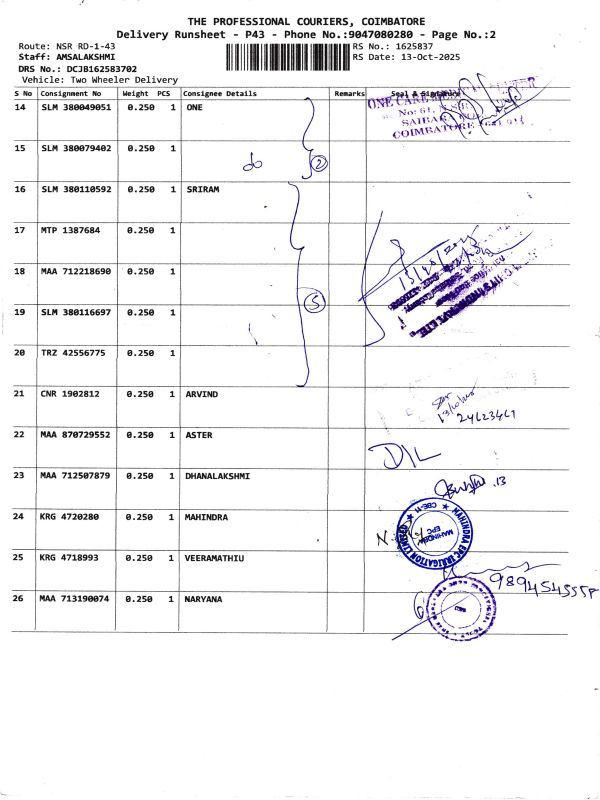 THE PROFESSIONAL COURIERS, COIMBATORE
Delivery Runsheet - P43 - Phone No.:9047080280 - Page No.:2
Route: NSR RD-1-43 RS No.: 1625837
Staff: AMSALAKSHMI RS Date: 13-Oct-2025
DRS No.: DCJB162583702
Vehicle: Two Wheeler Delivery
S No Consignment No Weight PCS Consignee Details Remarks Seal & Signature
14 SLM 380049051 0.250 1 ONE
ONE CARE
No: 61, N.S.R.
SAIBABA
COIMBATORE
15 SLM 380079402 0.250 1
do 2
16 SLM 380110592 0.250 1 SRIRAM
17 MTP 1387684 0.250 1
18 MAA 712218690 0.250 1
5
19 SLM 380116697 0.250 1
20 TRZ 42556775 0.250 1
21 CNR 1902812 0.250 1 ARVIND
24623461
22 MAA 870729552 0.250 1 ASTER
D/L
23 MAA 712507879 0.250 1 DHANALAKSHMI
.13
24 KRG 4720280 0.250 1 MAHINDRA
MAHINDRA EPC IRRIGATION LIMITED
CBE-11
MAHINDRA
EPC
25 KRG 4718993 0.250 1 VEERAMATHIU
26 MAA 713190074 0.250 1 NARYANA